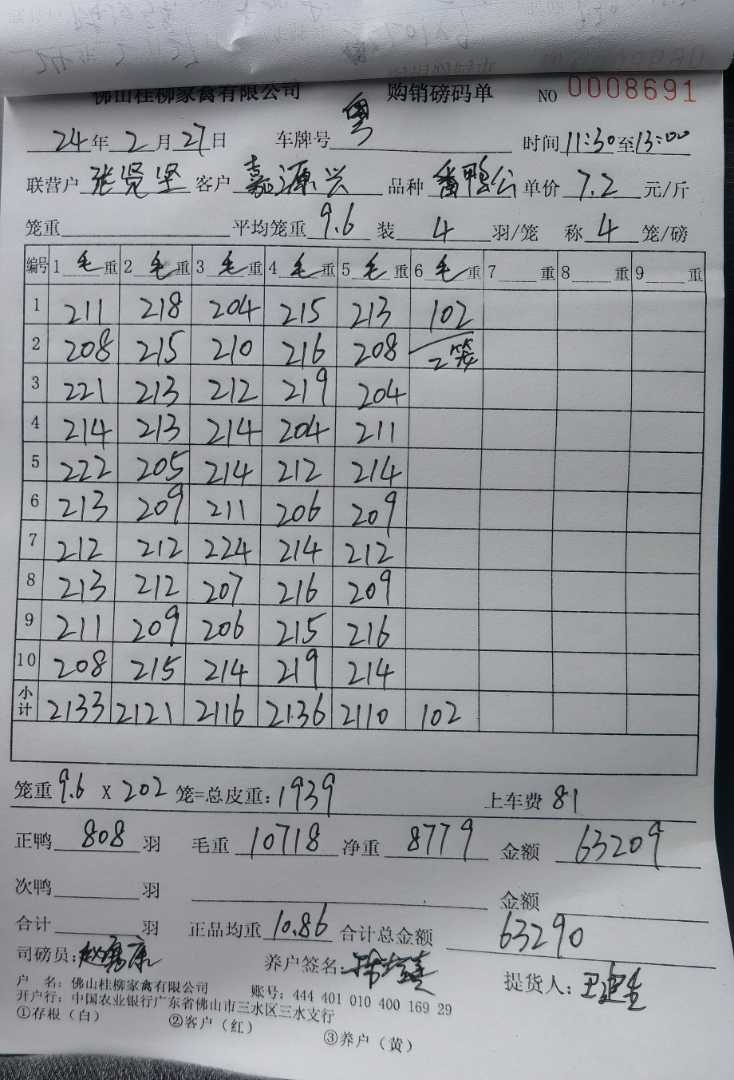 佛山桂柳家禽有限公司 购销磅码单 NO 0008691
24年2月27日 车牌号 粤 时间11:30至13:00
联营户 张贤坚 客户 嘉源兴 品种 番鸭公 单价 7.2 元/斤
笼重 平均笼重 9.6 装 4 羽/笼 称 4 笼/磅
编号 1 毛 重 2 毛 重 3 毛 重 4 毛 重 5 毛 重 6 毛 重 7 重 8 重 9 重
1 211 218 204 215 213 102
2 208 215 210 216 208 2笼
3 221 213 212 219 204
4 214 213 214 204 211
5 222 205 214 212 214
6 213 209 211 206 209
7 212 212 224 214 212
8 213 212 207 216 209
9 211 209 206 215 216
10 208 215 214 219 214
小计 2133 2121 2116 2136 2110 102
笼重 9.6 X 202 笼=总皮重: 1939 上车费 81
正鸭 808 羽 毛重 10718 净重 8779 金额 63209
次鸭 羽 金额
合计 羽 正品均重 10.86 合计总金额 63290
司磅员: 养户签名: 提货人:
户 名: 佛山桂柳家禽有限公司 账号: 444 401 010 400 169 29
开户行: 中国农业银行广东省佛山市三水区三水支行
①存根（白） ②客户（红） ③养户（黄）